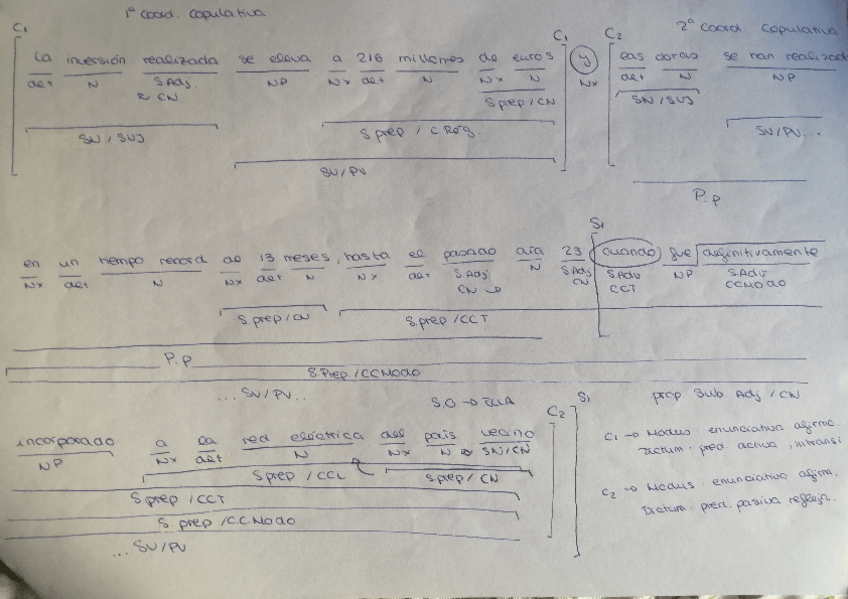 1ª Coord. Copulativa
2ª Coord Copulativa
C1 C1 C2
La inversión realizada se eleva a 216 millones de euros y las obras se han realizado
det N SAdj NP Nx det N Nx N Nx det N NP
CN S prep / CN SN / SUJ
SN / SUJ S prep / C Rég. SV/PV...
SV/PV
P.p
S1
en un tiempo record de 13 meses, hasta el pasado día 23 cuando fue definitivamente
Nx det N Nx det N Nx det SAdj N SAdj SAdv NP SAdv
CN CN CCT CCModo
S.prep/CN S.prep/CCT
P.p
S Prep / CCModo
...SV/PV.. S.O → ELLA C2 S1 prop Sub Adj / CN
incorporado a la red eléctrica del país vecino
NP Nx det N Nx N SN/CN
S prep / CCL S prep / CN
S prep / CCT
S prep / CC.Modo
... SV/PV
C1 → Modus: enunciativa afirma.
Dictum: pred. activa, intransi
C2 → Modus: enunciativa afirm.
Dictum: pred. pasiva refleja.